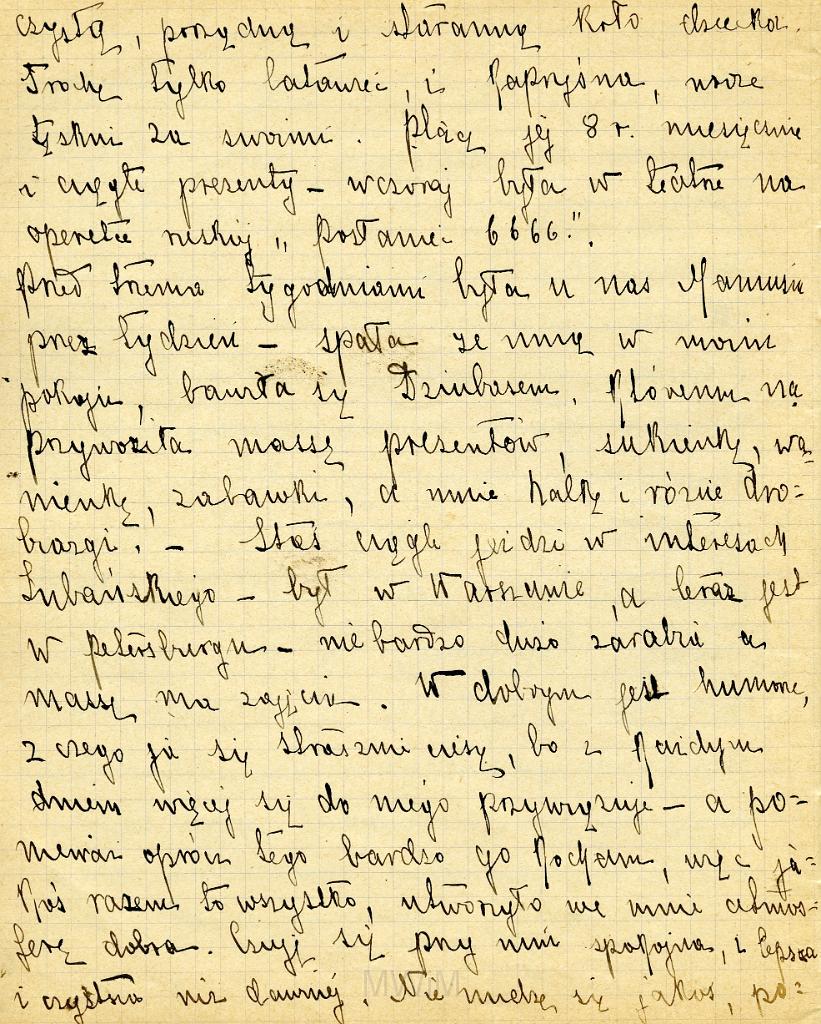 czystą, porządną i staranną koło dziecka.
Trochę tylko latawiec, i kapryśna, może
tęskni za swoimi. Płacę jej 8 r. miesięcznie
i ciągle prezenty – wczoraj była w teatrze na
operetce ruskiej „Posłaniec 6666."
Przed trzema tygodniami była u nas Mamusia
przez tydzień – spała ze mną w moim
pokoju, bawiła się Dziubasem, któremu na
przywoziła massę prezentów, sukienkę, wa-
nienkę, zabawki, a mnie halkę i różne dro-
biazgi. – Staś ciągle jeździ w interesach
Lubańskiego – był w Warszawie, a teraz jest
w Petersburgu – nie bardzo dużo zarabia a
massę ma zajęcia. W dobrym jest humorze,
z czego ja się strasznie cieszę, bo z każdym
dniem więcej się do niego przywiązuje – a po-
nieważ oprócz tego bardzo go kocham, więc ja-
koś razem to wszystko, utworzyło we mnie atmos-
ferę dobra. Czuję się przy nim spokojna, i lepsza
i czystsza niż dawniej. Nie nudzę się jakoś, po-
MWiM